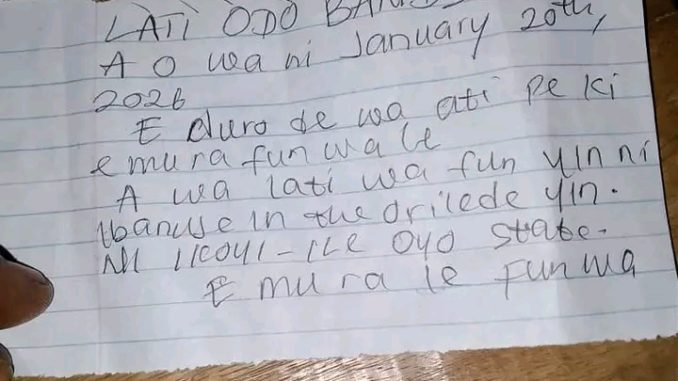 LÀTÌ ÒDÒ
A O wa ni January 20th,
2026
E duro de wa ati pe ki
e mu ra fun wa le
A wa lati wa fun yin ni
in the orilede yin.
NI IKOYI-ILE OYO state.
E mu ra le fun wa